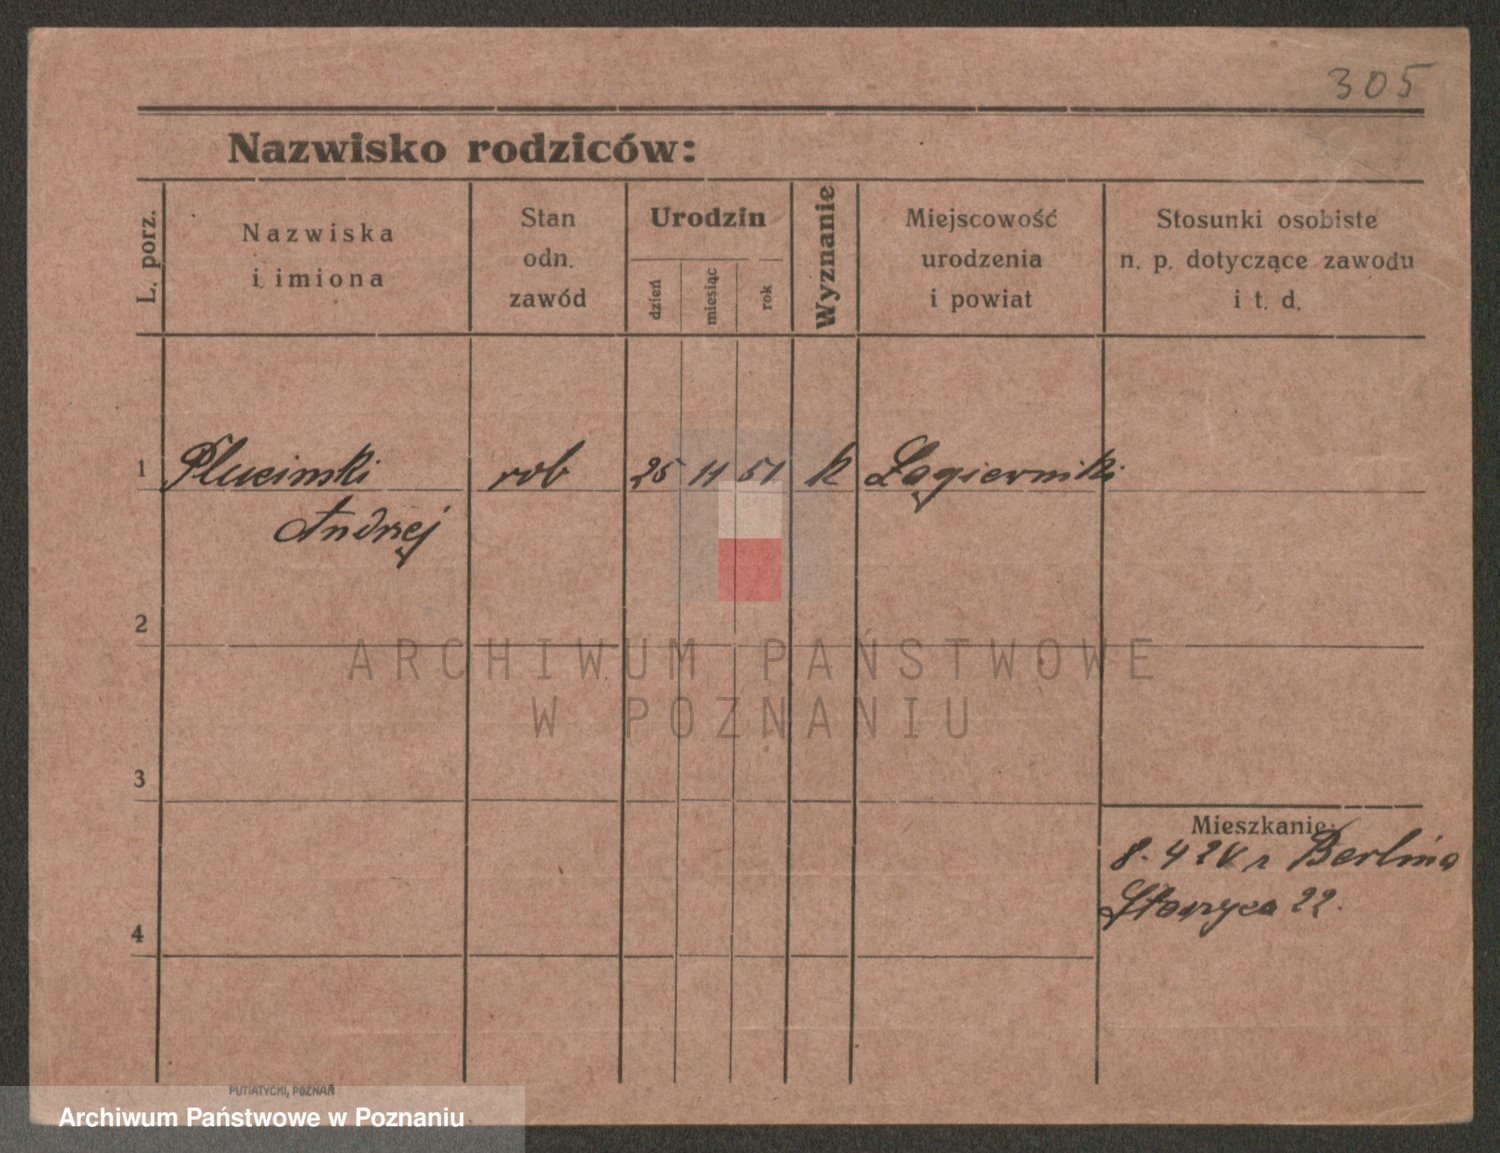 305
Nazwisko rodziców:
L. porz.
Nazwiska
i imiona
Stan
odn.
zawód
Urodzin
dzień
miesiąc
rok
Wyznanie
Miejscowość
urodzenia
i powiat
Stosunki osobiste
n. p. dotyczące zawodu
i t. d.
1 Plucinski rob 25 11 51 k Łagierniki
Andrzej
2
ARCHIWUM PAŃSTWOWE
W POZNANIU
3
4
Mieszkanie:
8. 4 24 z Berlina
22.
PUTIATYCKI, POZNAŃ
Archiwum Państwowe w Poznaniu